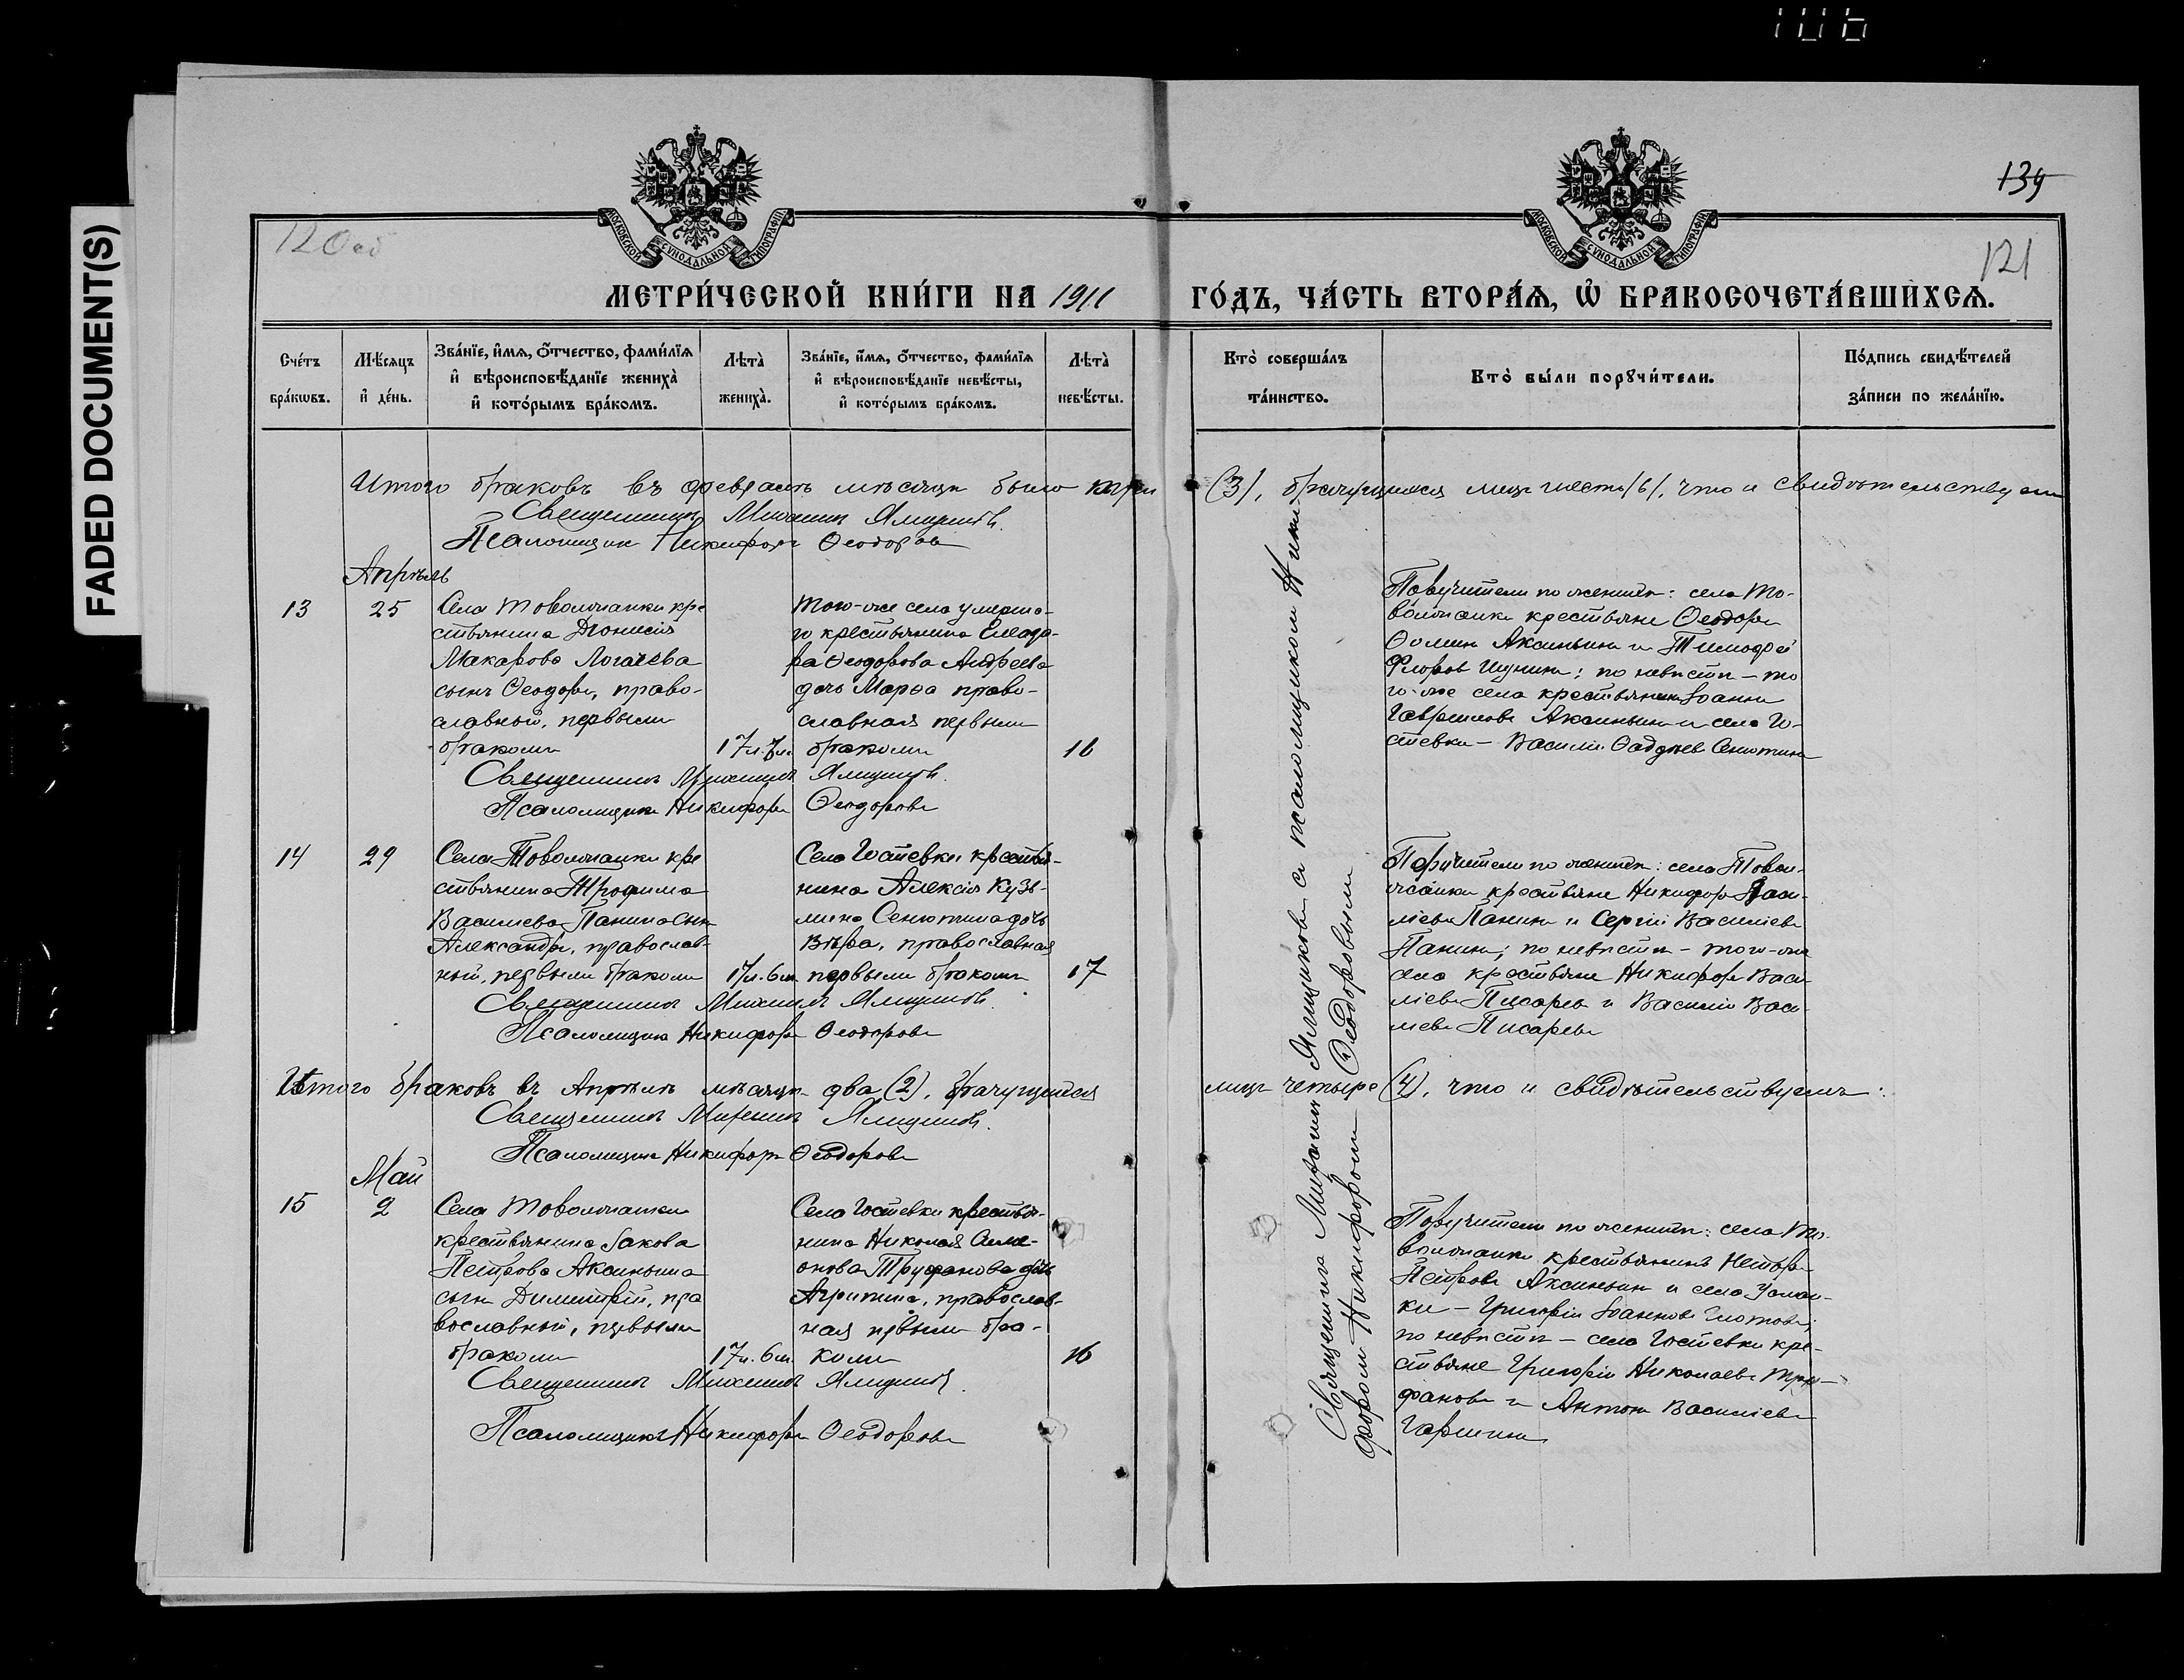 106
FADED DOCUMENT(S)
139
120 об
121
МОСКОВСКОЙ СѴНОДАЛЬНОЙ ТИПОГРАФІИ
МОСКОВСКОЙ СѴНОДАЛЬНОЙ ТИПОГРАФІИ
МЕТРИ́ЧЕСКОЙ КНИ́ГИ НА 1911
ГО́ДЪ, ЧА́СТЬ ВТОРА́Ѧ, Ѡ҆ БРАКОСОЧЕТА́ВШИХСѦ.
Сче́тъ
бра́кѡвъ.
Мѣ́сяцъ
и҆ де́нь.
Зва́нїе, и҆́мѧ, ѻ҆́тчество, фами́лїѧ
и҆ вѣроисповѣ́данїе жениха̀
и҆ кото́рымъ бра́комъ.
Лѣта̀
жениха̀.
Зва́нїе, и҆́мѧ, ѻ҆́тчество, фами́лїѧ
и҆ вѣроисповѣ́данїе невѣ́сты,
и҆ кото́рымъ бра́комъ.
Лѣта̀
невѣ́сты.
Кто̀ соверша́лъ
та́инство.
Кто̀ бы́ли порꙋчи́тели.
По́дпись свидѣ́телей
за́писи по жела́нїю.
Итого браковъ въ февралѣ мѣсяцѣ было три (3), брачущихся лицъ шесть (6), что и свидѣтельствуемъ
Священникъ Михаилъ Ямщиковъ.
Псаломщикъ Никифоръ Ѳеодоровъ
Апрѣль
13
25
Села Товолжанки кре
стьянина Діонисія
Макарова Логачева
сынъ Ѳеодоръ, право-
славный, первымъ
бракомъ
17 л. 7 м.
Того-же села умерша-
го крестьянина Елеаза-
ра Ѳеодорова Андреева
дочь Марѳа право-
славная первымъ
бракомъ
16
Поручители по женихѣ: села То-
волжанки крестьяне Ѳеодоръ
Ѳоминъ Аксиньинъ и Тимофей
Флоровъ Шунинъ; по невѣстѣ – то
го-же села крестьянинъ Іоаннъ
Гавриловъ Аксиньинъ и села Го-
стевки – Василій Ѳаддѣевъ Сенютинъ
Священникъ Михаилъ Ямщиковъ.
Псаломщикъ Никифоръ Ѳеодоровъ
14
29
Села Товолжанки кре
стьянина Трофима
Василіева Панина сынъ
Александръ, православ-
ный, первымъ бракомъ
17 л. 6 м.
Села Гостевки крестья-
нина Алексія Кузь-
мина Сенютина дочь
Вѣра, православная
первымъ бракомъ
17
Поручители по женихѣ: села Товол-
жанки крестьяне Никифоръ Васи-
ліевъ Панинъ и Сергій Василіевъ
Панинъ; по невѣстѣ – того-же
села крестьяне Никифоръ Васи
ліевъ Писаревъ и Василій Васи
ліевъ Писаревъ
Священникъ Михаилъ Ямщиковъ.
Псаломщикъ Никифоръ Ѳеодоровъ
Итого браковъ въ Апрѣлѣ мѣсяцѣ два (2), брачущихся лицъ четыре (4), что и свидѣтельствуемъ:
Священникъ Михаилъ Ямщиковъ.
Псаломщикъ Никифоръ Ѳеодоровъ
Май
15
2
Села Товолжанки
крестьянина Іакова
Петрова Аксиньина
сынъ Димитрій, пра
вославный, первымъ
бракомъ
17 л. 6 м.
Села Гостевки крестья-
нина Николая Симе-
онова Труфанова дочь
Агрипина, православ-
ная первымъ бра-
комъ
16
Поручители по женихѣ: села То-
волжанки крестьянинъ Несторъ
Петровъ Аксиньинъ и села Усман-
ки – Григорій Іоанновъ Глотовъ;
по невѣстѣ – села Гостевки кре-
стьяне Григорій Николаевъ Тру-
фановъ и Антонъ Василіевъ
Гаршинъ
Священникъ Михаилъ Ямщиковъ.
Псаломщикъ Никифоръ Ѳеодоровъ
Священникъ Михаилъ Ямщиковъ съ псаломщикомъ Ники
форомъ Никифоромъ Ѳеодоровымъ